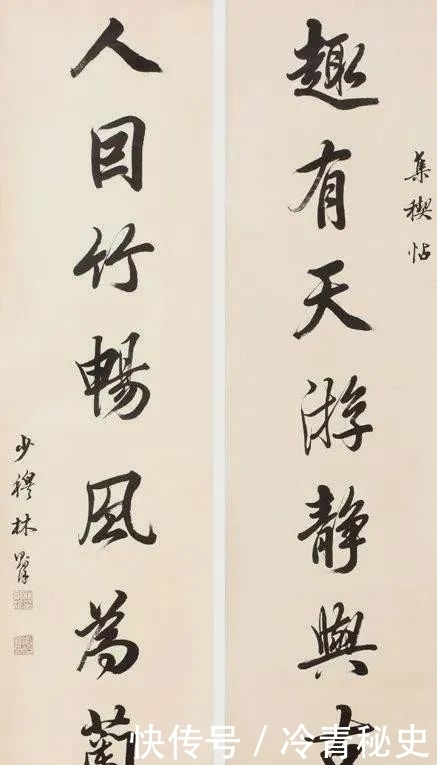 集禊帖
趣有天游静與古
人因竹暢風為蘭
少穆林則徐
快传号 / 冷青秘史